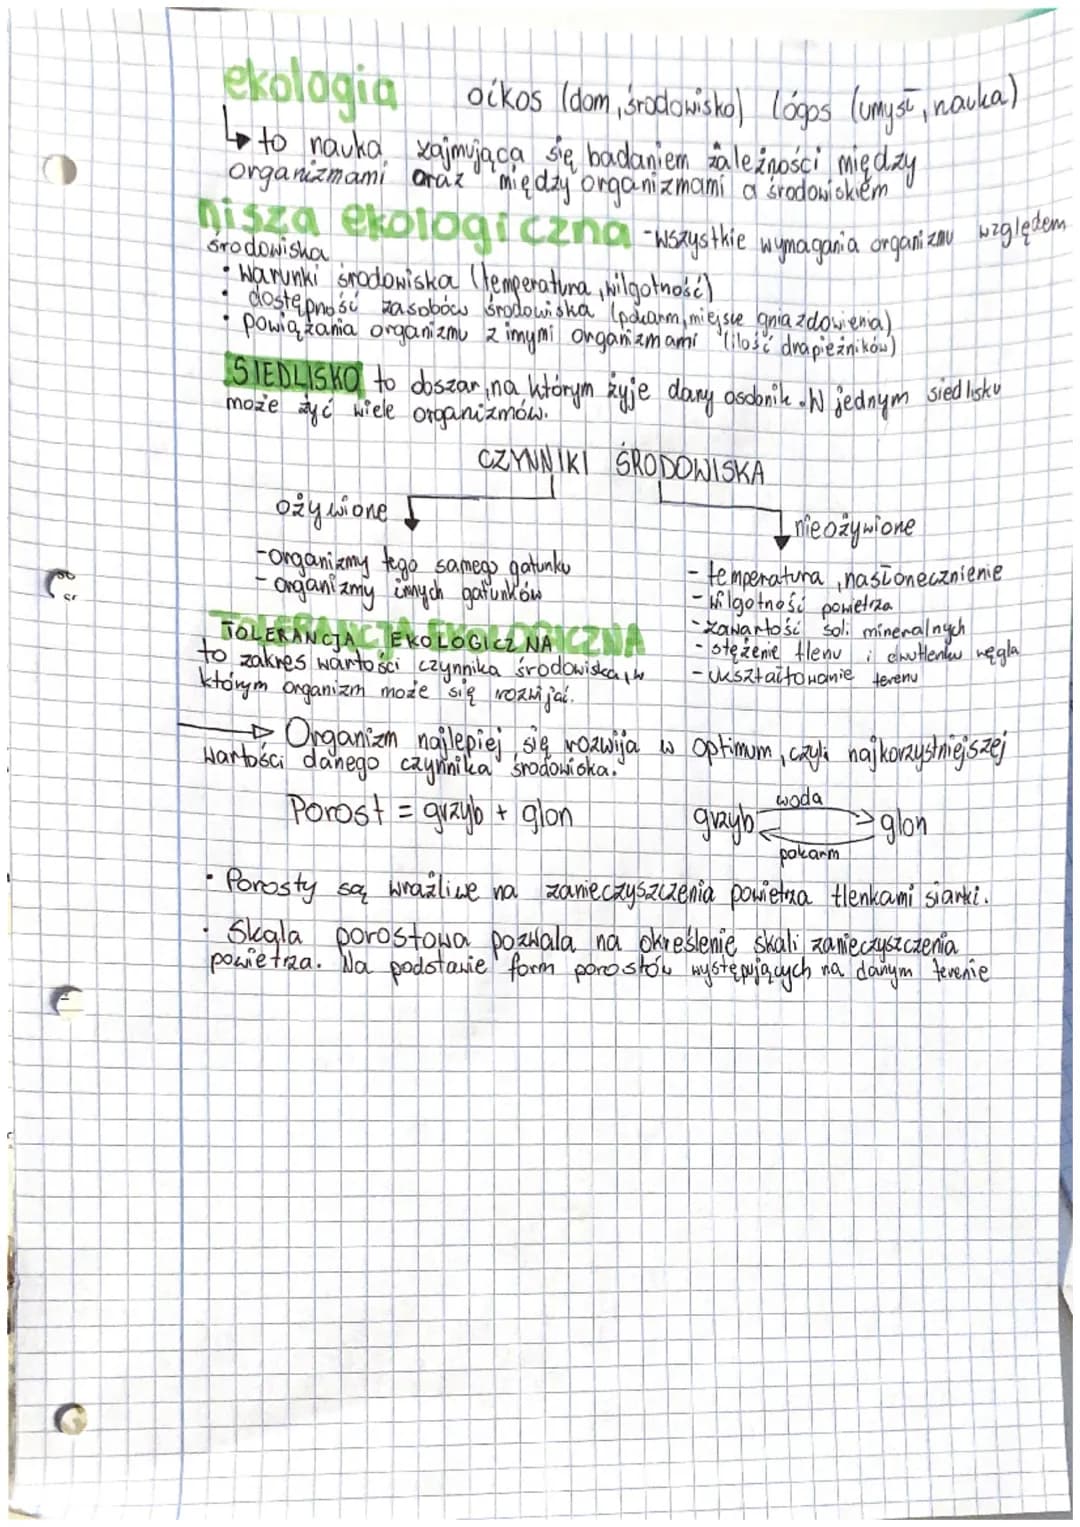 ekologia oikos (dom, środowisko) lógos (umysł, nauka)
↳ to nauka zajmująca się badaniem zależności między
organizmami oraz między organizmami a środowiskiem
nisza ekologiczna - wszystkie wymagania organizmu względem
środowiska
• warunki środowiska (temperatura, wilgotność)
• dostępność zasobów środowiska (pokarm, miejsce gniazdowienia)
• powiązania organizmu z innymi organizmami (ilość drapieżników)
SIEDLISKO to obszar, na którym żyje dany osobnik. W jednym siedlisku
może żyć wiele organizmów.
CZYNNIKI ŚRODOWISKA
ożywione
nieożywione
- organizmy tego samego gatunku
- organizmy innych gatunków
- temperatura, nasłonecznienie
- wilgotność powietrza
- zawartość soli mineralnych
- stężenie tlenu i dwutlenku węgla
- ukształtowanie terenu
TOLERANCJA EKOLOGICZNA
to zakres wartości czynnika środowiska, w
którym organizm może się rozwijać.
→ Organizm najlepiej się rozwija w optimum, czyli najkorzystniejszej
wartości danego czynnika środowiska.
Porost = grzyb + glon
woda
grzyb glon
pokarm
• Porosty są wrażliwe na zanieczyszczenia powietrza tlenkami siarki.
• Skala porostowa pozwala na określenie skali zanieczyszczenia
powietrza. Na podstawie form porostów występujących na danym terenie